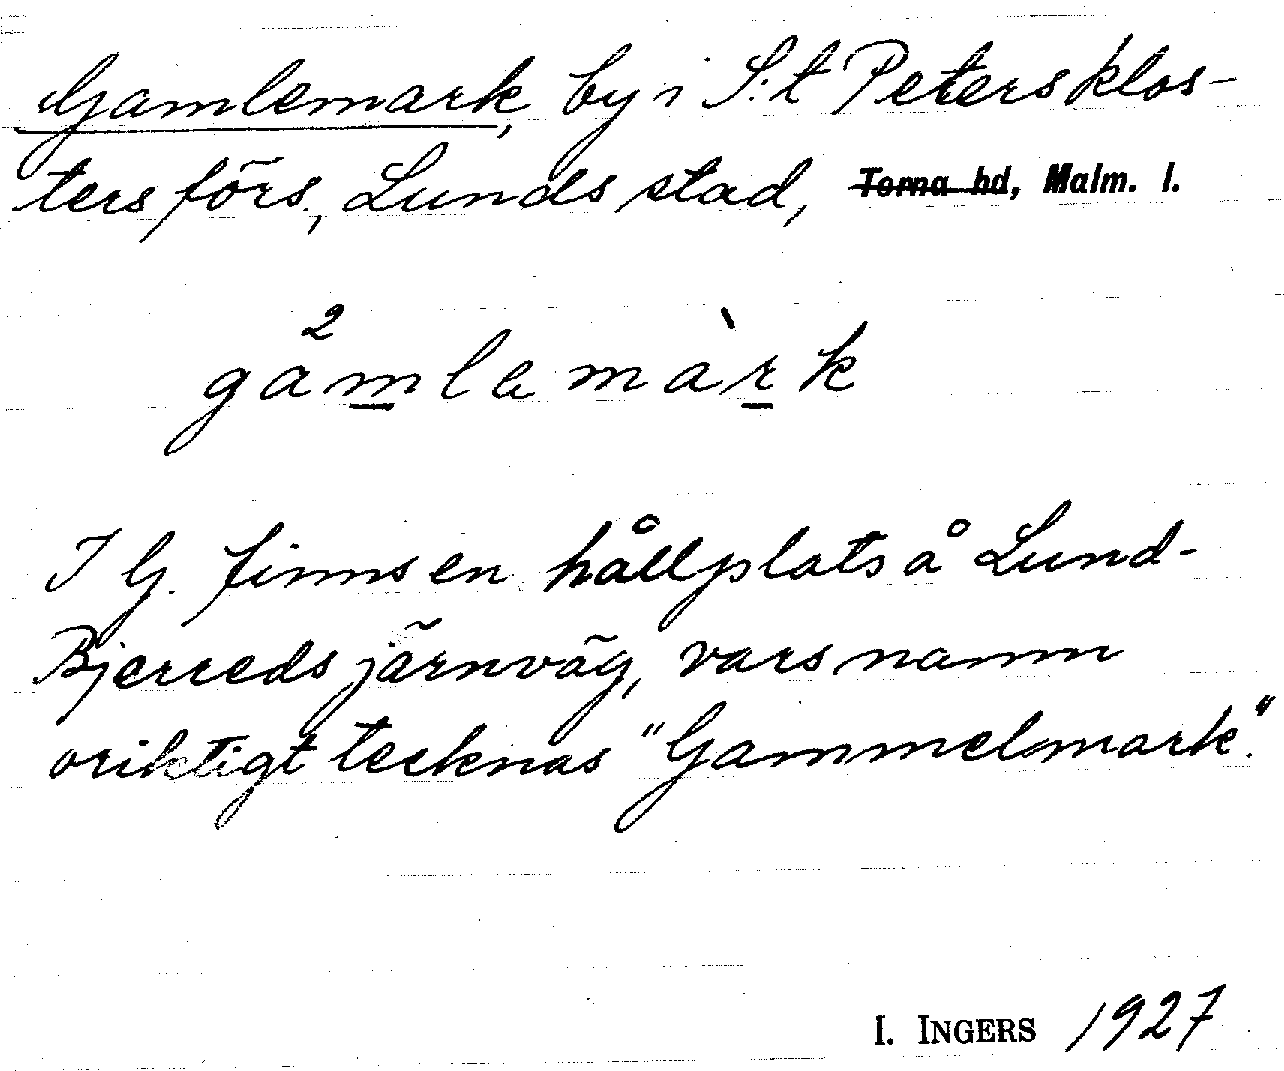 Gamlemark, by i S:t Petersklos-
ters förs., Lunds stad, Torna hd, Malm. l.
gå²mlemàrk
I G. finns en hållplats å Lund-
Bjerreds järnväg, vars namn
oriktigt tecknas "Gammelmark."
I. INGERS 1927